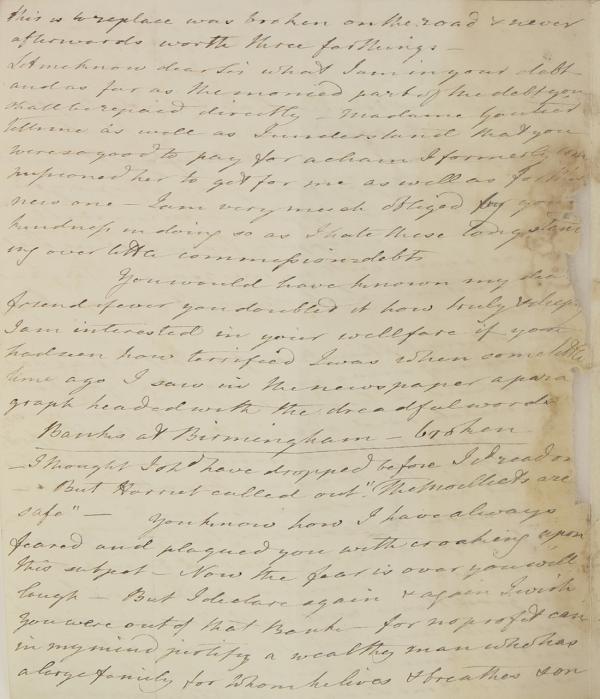 this is to replace was broken on the road & never
afterwards worth three farthings –
Let me know dear Sir what I am in your debt
and as far as the monied part of the debt you
shall be repaid directly – Madame Gautier
tells me as well as I understand that you
were so good to pay for a cham I formerly com
missioned her to get for me as well as for this
new one – I am very much obliged for your
kindness in doing so as I hate these long stand
ing over little commission debts
You would have known my dear
friend if ever you doubted it how truly & deeply
I am interested in your wellfare if you
had seen how terrified I was when some little
time ago I saw in the newspaper a para
graph headed with the dreadful words
Banks at Birmingham – broken
– I thought I shd have dropped before I cd read on
– But Harriet called out "The Moilliets are
safe" – You know how I have always
feared and plagued you with croaking upon
this subject – Now the fear is over you will
laugh – But I declare again & again I wish
you were out of that Bank – for no profit can
in my mind justify a wealthy man who has
a large family for whom he lives & breathes & on